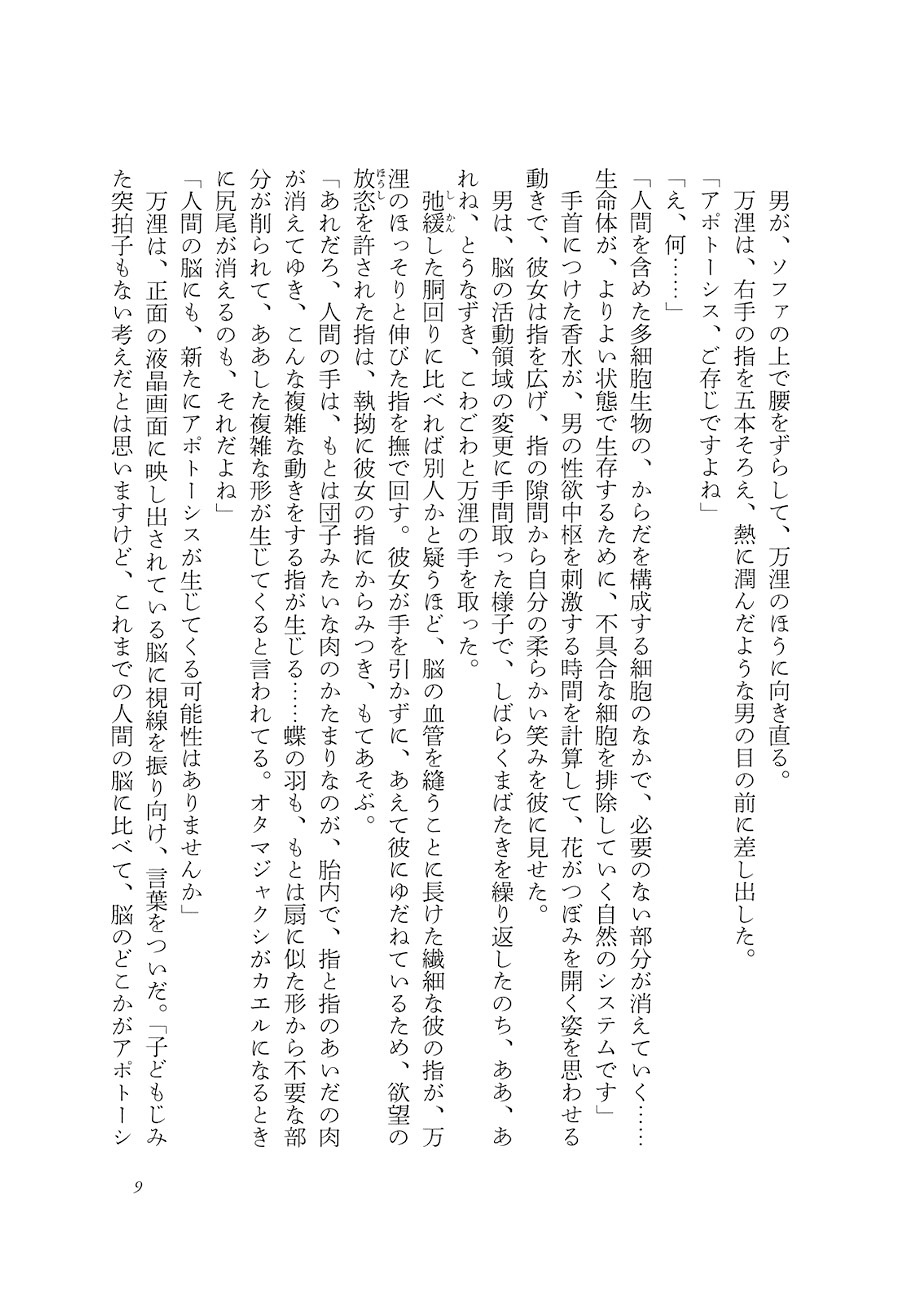 男が、ソファの上で腰をずらして、万浬のほうに向き直る。
　万浬は、右手の指を五本そろえ、熱に潤んだような男の目の前に差し出した。
「アポトーシス、ご存じですよね」
「え、何……」
「人間を含めた多細胞生物の、からだを構成する細胞のなかで、必要のない部分が消えていく……
生命体が、よりよい状態で生存するために、不具合な細胞を排除していく自然のシステムです」
　手首につけた香水が、男の性欲中枢を刺激する時間を計算して、花がつぼみを開く姿を思わせる
動きで、彼女は指を広げ、指の隙間から自分の柔らかい笑みを彼に見せた。
　男は、脳の活動領域の変更に手間取った様子で、しばらくまばたきを繰り返したのち、ああ、あ
れね、とうなずき、こわごわと万浬の手を取った。
　弛緩した胴回りに比べれば別人かと疑うほど、脳の血管を縫うことに長けた繊細な彼の指が、万
浬のほっそりと伸びた指を撫で回す。彼女が手を引かずに、あえて彼にゆだねているため、欲望の
放恣を許された指は、執拗に彼女の指にからみつき、もてあそぶ。
「あれだろ、人間の手は、もとは団子みたいな肉のかたまりなのが、胎内で、指と指のあいだの肉
が消えてゆき、こんな複雑な動きをする指が生じる……蝶の羽も、もとは扇に似た形から不要な部
分が削られて、ああした複雑な形が生じてくると言われてる。オタマジャクシがカエルになるとき
に尻尾が消えるのも、それだよね」
「人間の脳にも、新たにアポトーシスが生じてくる可能性はありませんか」
　万浬は、正面の液晶画面に映し出されている脳に視線を振り向け、言葉をついだ。「子どもじみ
た突拍子もない考えだとは思いますけど、これまでの人間の脳に比べて、脳のどこかがアポトーシ
9